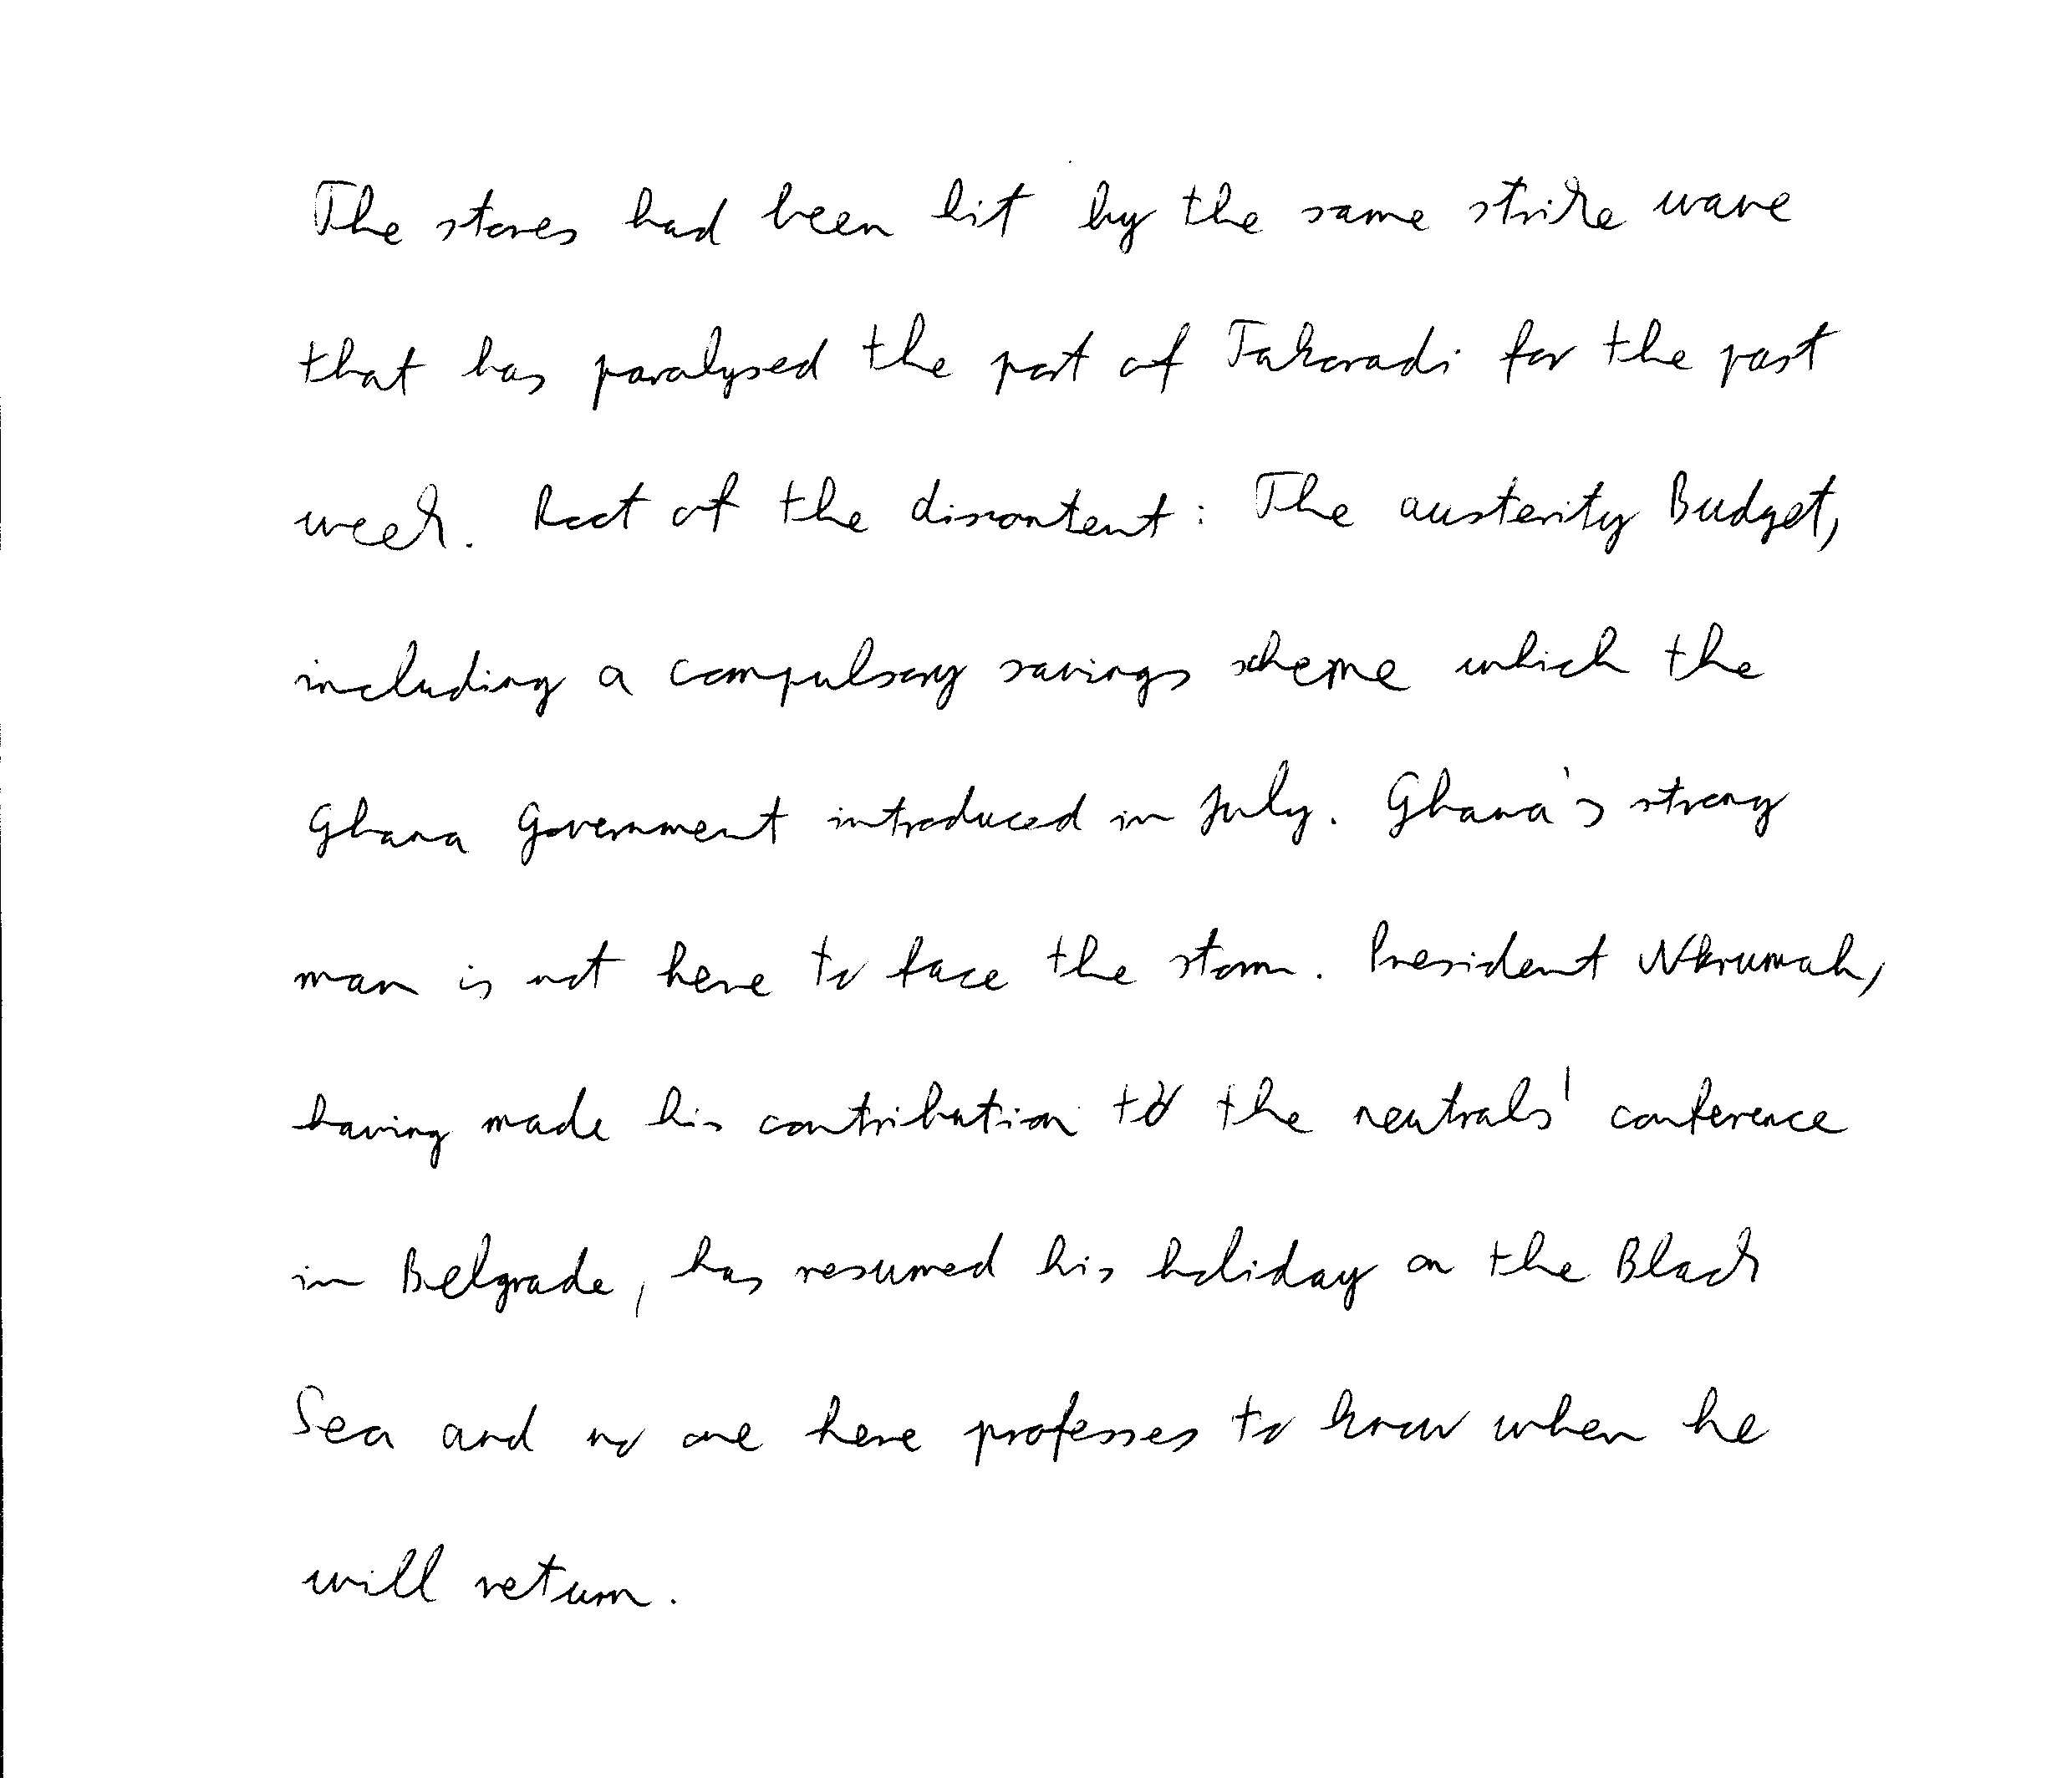 The stores had been hit by the same strike wave
that has paralysed the port of Takoradi for the past
week. Root of the discontent: The austerity Budget,
including a compulsory savings scheme which the
Ghana Government introduced in July. Ghana's strong
man is not here to face the storm. President Nkrumah,
having made his contribution to the neutrals' conference
in Belgrade, has resumed his holiday on the Black
Sea and no one here professes to know when he
will return.